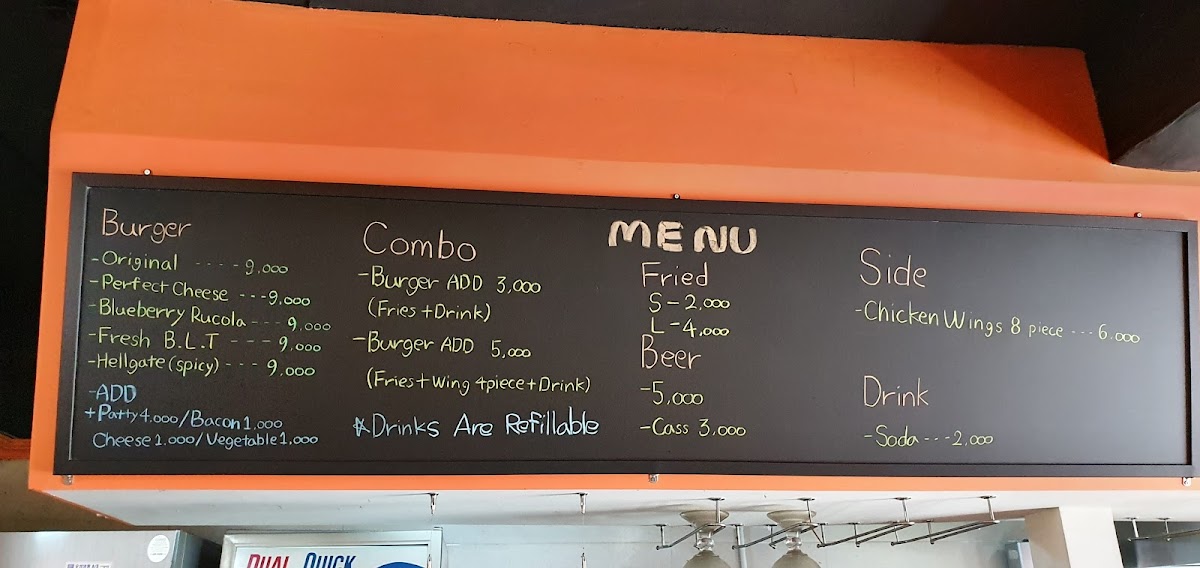 MENU
Burger
-Original ----- 9,000
-Perfect Cheese ---9,000
-Blueberry Rucola --- 9,000
-Fresh B.L.T --- 9,000
-Hellgate (spicy) --- 9,000
-ADD
+Patty 4.000/Bacon 1,000
Cheese 1.000/Vegetable 1,000
Combo
-Burger ADD 3,000
(Fries+Drink)
-Burger ADD 5,000
(Fries+Wing 4piece+Drink)
☆Drinks Are Refillable
Fried
S-2,000
L-4,000
Beer
-5,000
-Cass 3,000
Side
-Chicken Wings 8 piece ---6,000
Drink
-Soda ---2,000
DUAL QUICK